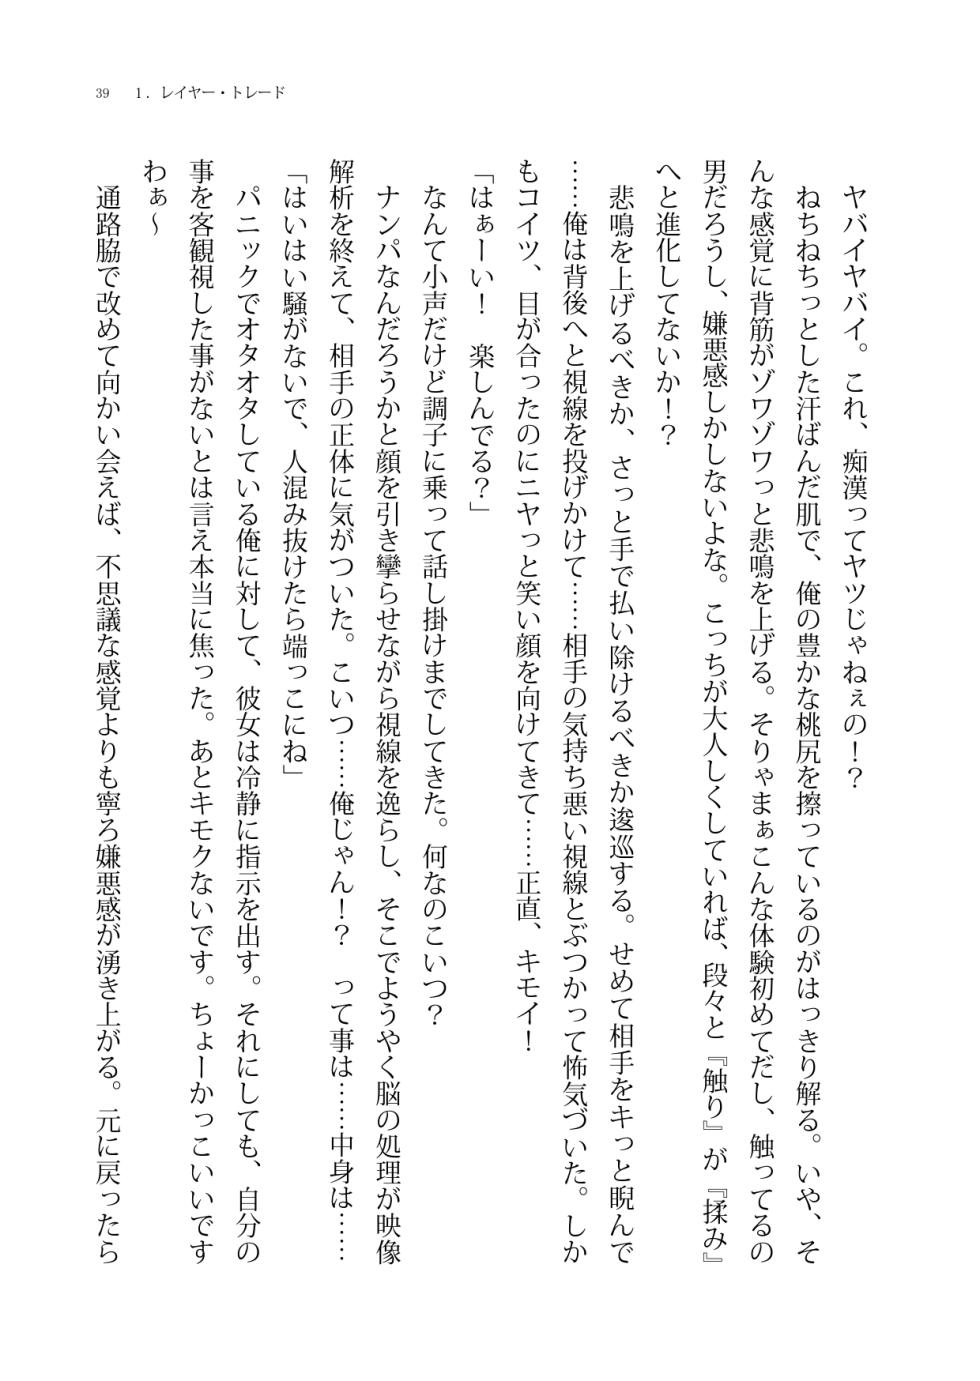 39　1．レイヤー・トレード
ヤバイヤバイ。これ、痴漢ってヤツじゃねぇの！？
ねちねちっとした汗ばんだ肌で、俺の豊かな桃尻を擦っているのがはっきり解る。いや、そ
んな感覚に背筋がゾワゾワっと悲鳴を上げる。そりゃまぁこんな体験初めてだし、触ってるの
男だろうし、嫌悪感しかしないよな。こっちが大人しくしていれば、段々と『触り』が『揉み』
へと進化してないか！？
悲鳴を上げるべきか、さっと手で払い除けるべきか逡巡する。せめて相手をキっと睨んで
……俺は背後へと視線を投げかけて……相手の気持ち悪い視線とぶつかって怖気づいた。しか
もコイツ、目が合ったのにニヤっと笑い顔を向けてきて……正直、キモイ！
「はぁーい！　楽しんでる？」
なんて小声だけど調子に乗って話し掛けまでしてきた。何なのこいつ？
ナンパなんだろうかと顔を引き攣らせながら視線を逸らし、そこでようやく脳の処理が映像
解析を終えて、相手の正体に気がついた。こいつ……俺じゃん！？　って事は……中身は……
「はいはい騒がないで、人混み抜けたら端っこにね」
パニックでオタオタしている俺に対して、彼女は冷静に指示を出す。それにしても、自分の
事を客観視した事がないとは言え本当に焦った。あとキモクないです。ちょーかっこいいです
わぁ～
通路脇で改めて向かい会えば、不思議な感覚よりも寧ろ嫌悪感が湧き上がる。元に戻ったら